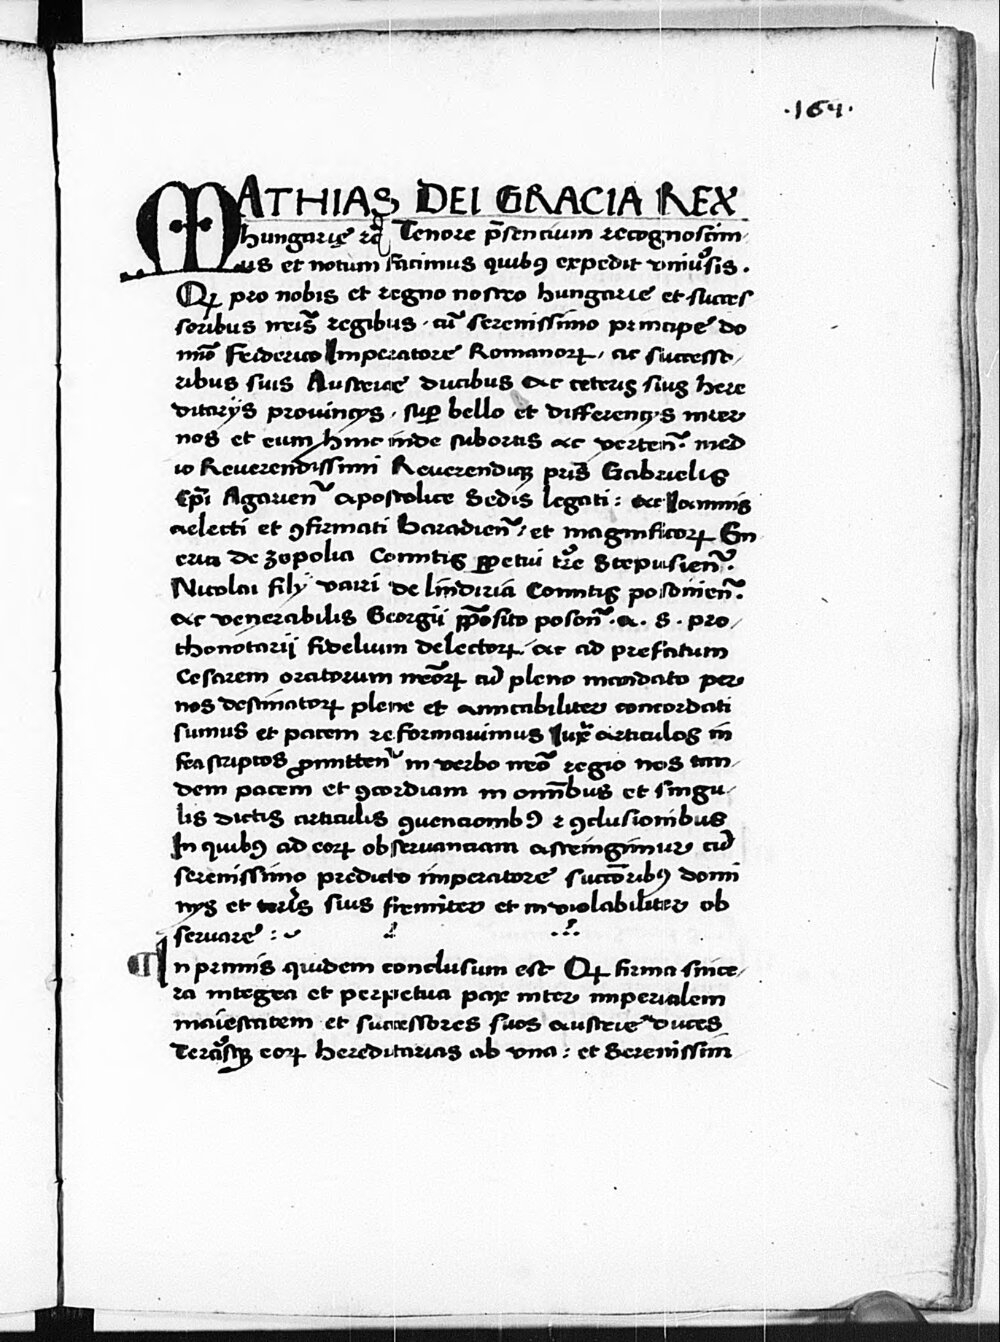 ·164·
MATHIAS DEI GRACIA REX
hungarie rc̄ Tenore p̄sencium recognoscim
us et notum facimus quibꝯ expedit vniu̇sis.
Qꝫ pro nobis et regno nostro hungarie et succes
soribus nr̄is regibus · cū serenissimo principe do
mīo Feiderico Imperatore Romanorꝝ, ac successo
ribus suis Austerie ducibus ac ceteris siuis here
ditarijs prouincijs, suꝑ bello et differencijs inter
nos et eum hinc inde subortis ac verten̄. med
io Reuerendissimi Reuerendiqꝫ pr̄is Gabrielis
Ep̄i Agarien̄ apostolice Sedis legati: ac Ioannis
aelecti et ꝯfirmati Varadien̄, et magnificorꝝ Em
erici de zopolia Comitis ꝑpetui tr̄e Stepusien̄.
Nicolai filij vairi de lindiria Comitis posonien̄.
ac venerabilis Georgii p̄posito poson̄. a. S. pro
thonotarij fidelium delectorꝝ ac ad prefatum
Cesarem oratorum nr̄orꝝ cū pleno mandato per
nos destinatorꝝ plene et amicabiliter concordati
sumus et pacem reformauimus Iuxͣ articulos in
fra scriptos ꝓmitten̄ in verbo nr̄o regio nos ean
dem pacem et ꝯcordiam in omībus et singu
lis dictis articulis ꝯuencionibꝯ et ꝯclusionibus
In quibꝯ ad eorꝝ obseruanciam astringimur cū
serenissimo predicto imperatore succōribꝯ domi
nijs et terris siuis firmiter et inviolabiliter ob
seruare :
In primis quidem conclusum est Qꝫ firma since
ra integra et perpetua pax inter imperialem
maiestatem et successores suos austrie duces
Terrasqꝫ eorꝝ hereditarias ab vna: et Serenissim